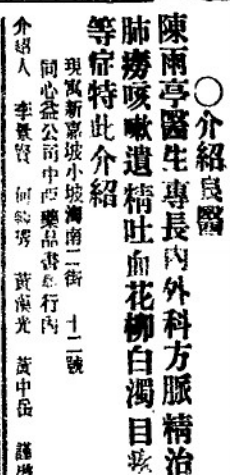 ○介紹良醫
陳雨亭醫生專長內外科方脈精治
肺癆咳嗽遺精吐血花柳白濁目疾
等症特此介紹
現寓新嘉坡小坡海南二街 十二號
同心益公司中西藥品書局行內
介紹人 李景賢 何 秀 黃漢光 黃中岳 謹啟